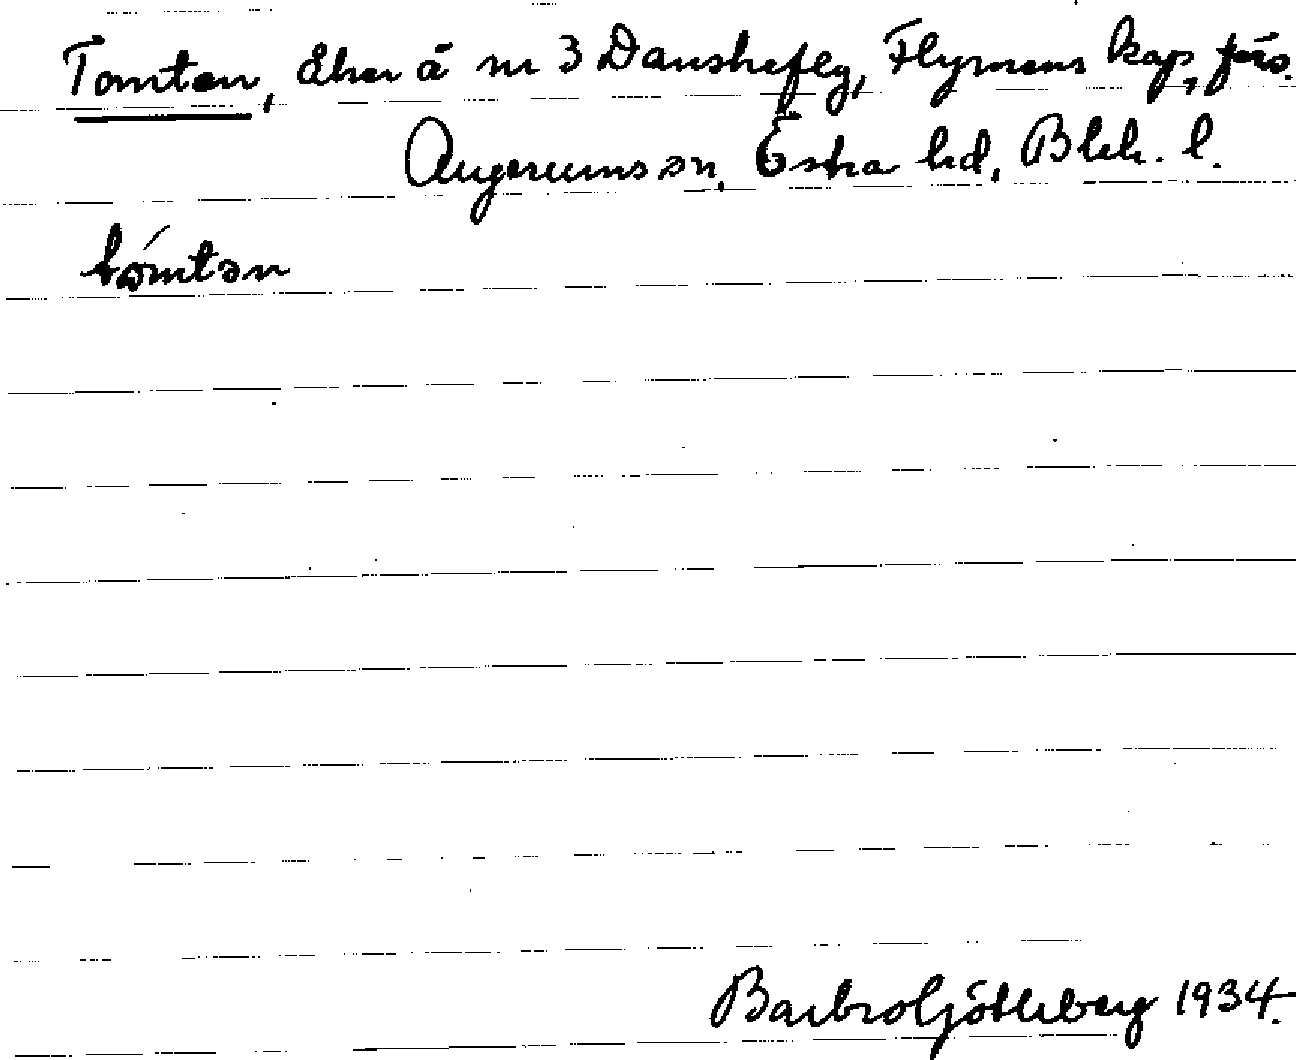 Tomten, åker å nr 3 Danskefly, Flymens kap. förs.
Augerums sn, Östra hd, Blek. l.
tómtən
Barbro Götleberg 1934.